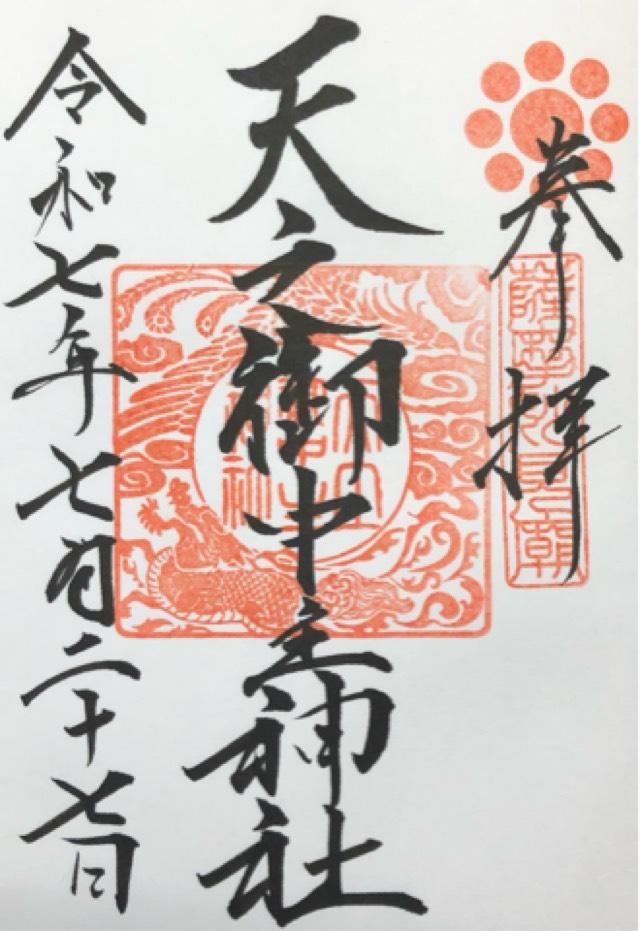 奉拝
天之御中主神社
令和七年七月二十七日